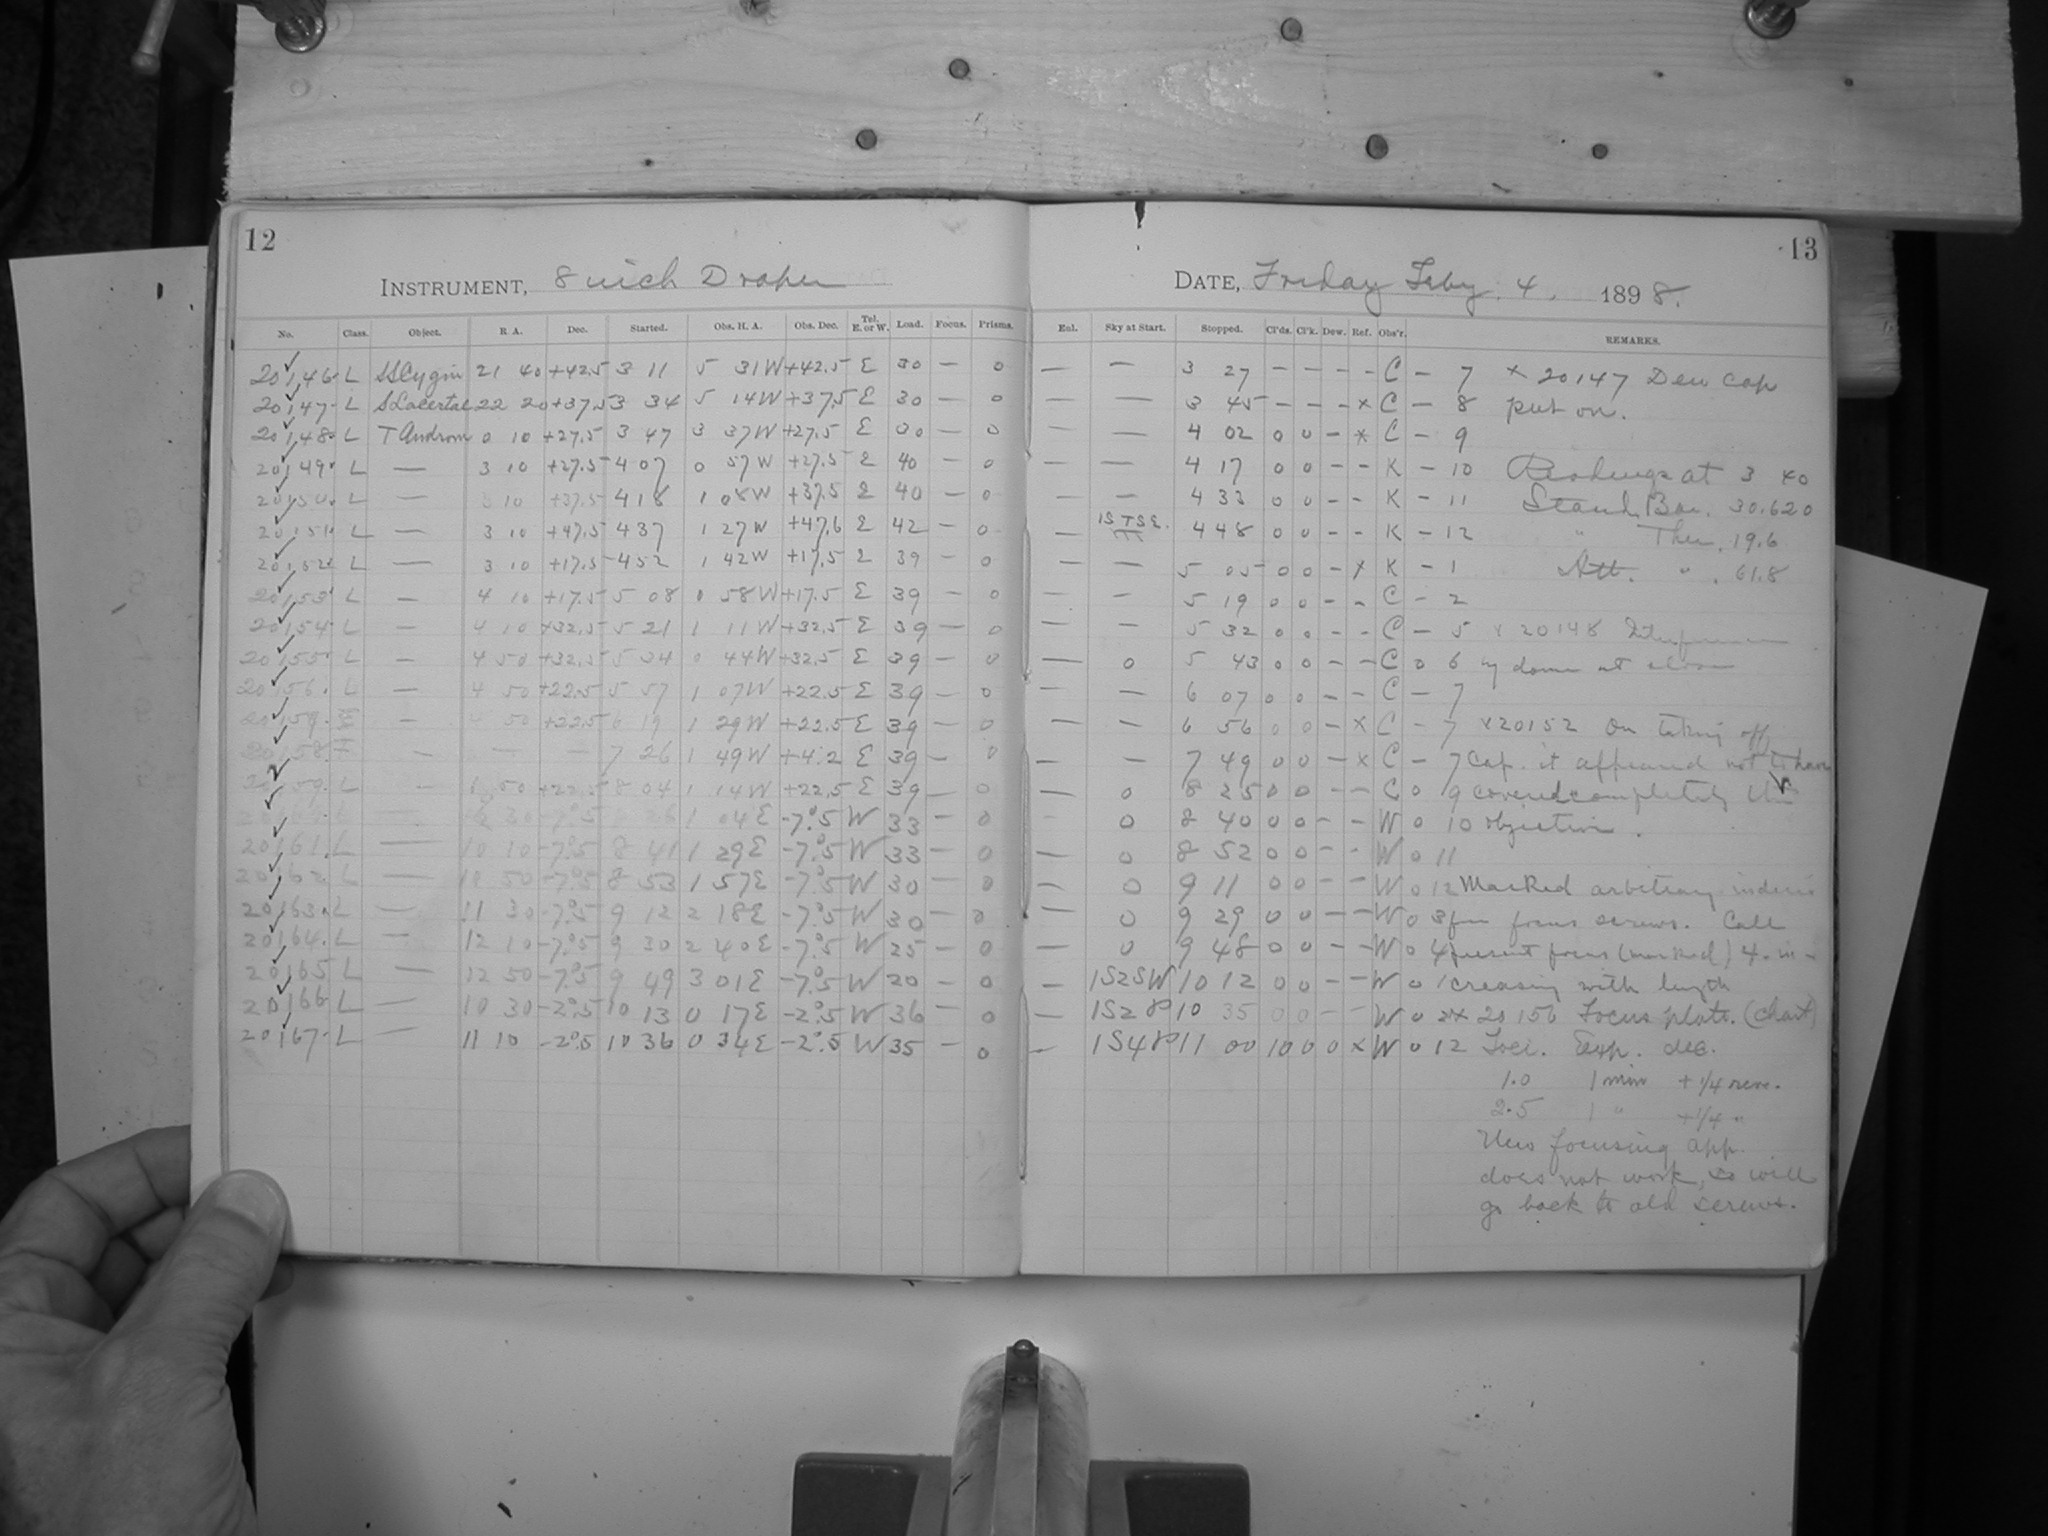 12
INSTRUMENT, 8 inch Draper
No. Class. Object. R. A. Dec. Started. Obs. H. A. Obs. Dec. Tel. E. or W. Load. Focus. Prisms.
20146 L SS Cygni 21 40 +42.5 3 11 5 31W +42.5 E 30 — 0
20147 L S Lacertae 22 20 +37.5 3 34 5 14W +37.5 E 30 — 0
20148 L T Androm 0 10 +27.5 3 47 3 37W +27.5 E 30 — 0
20149 L — 3 10 +27.5 4 07 0 57W +27.5 E 40 — 0
20150 L — 3 10 +37.5 4 18 1 08W +37.5 E 40 — 0
20151 L — 3 10 +47.5 4 37 1 27W +47.6 E 42 — 0
20152 L — 3 10 +17.5 4 52 1 42W +17.5 E 39 — 0
20153 L — 4 10 +17.5 5 08 0 58W +17.5 E 39 — 0
20154 L — 4 10 +32.5 5 21 1 11W +32.5 E 39 — 0
20155 L — 4 50 +32.5 5 34 0 44W +32.5 E 39 — 0
20156. L — 4 50 +22.5 5 57 1 07W +22.5 E 39 — 0
— 4 50 +22.5 6 19 1 29W +22.5 E 39 — 0
20158 — — — 7 26 1 49W +4.2 E 39 — 0
20159 L — 50 +22.5 8 04 1 14W +22.5 E 39 — 0
30 -7°.5 8 26 1 04E -7°.5 W 33 — 0
20161. L — 10 10 -7°.5 8 41 1 29E -7°.5 W 33 — 0
20162 L — 10 50 -7°.5 8 53 1 57E -7°.5 W 30 — 0
20163. L — 11 30 -7°.5 9 12 2 18E -7°.5 W 30 — 0
20164. L — 12 10 -7°.5 9 30 2 40E -7°.5 W 25 — 0
20165 L — 12 50 -7°.5 9 49 3 01E -7°.5 W 20 — 0
20166 L — 10 30 -2°.5 10 13 0 17E -2°.5 W 36 — 0
20167. L — 11 10 -2°.5 10 36 0 34E -2°.5 W 35 — 0
13
DATE, Friday Feby. 4. 1898.
Enl. Sky at Start. Stopped. Cl'ds. Cl'k. Dew. Ref. Obs'r. REMARKS.
— — 3 27 — — — — C — 7 x 20147 Dew cap
— — 3 45 — — — x C — 8 put on.
— — 4 02 0 0 — x C — 9
— — 4 17 0 0 — — K — 10 Readings at 3 40
— — 4 33 0 0 — — K — 11 Stand. Bar. 30.620
— 1S TSE. 4 48 0 0 — — K — 12 " Ther. 19.6
— — 5 05 0 0 — x K — 1 Att. " . 61.8
— — 5 19 0 0 — — C — 2
— — 5 32 0 0 — — C — 5 x 20148 Interference
— 0 5 43 0 0 — — C 0 6 by dome at
— — 6 07 0 0 — — C — 7
— — 6 56 0 0 — x C — 7 x 20152 On taking off
— — 7 49 0 0 — x C — 7 cap. it appeared not to have
— 0 8 25 0 0 — — C 0 9 covered completely the
— 0 8 40 0 0 — — W 0 10 objective.
— 0 8 52 0 0 — — W 0 11
— 0 9 11 0 0 — — W 0 12 Marked arbitrary
— 0 9 29 0 0 — — W 0 3 for focus screws. Call
— 0 9 48 0 0 — — W 0 4 present focus (marked) 4. in-
— 1S2SW 10 12 0 0 — — W 0 1 creasing with length
— 1S2 10 35 0 0 — — W 0 2 x 20156 Focus plate. (Chart)
— 1S4 11 00 10 0 0 x W 0 12 Foci. Exp. dec.
1.0 1 min + 1/4 rev.
2.5 1 " + 1/4 "
New focusing app.
does not work, so will
go back to old screws.